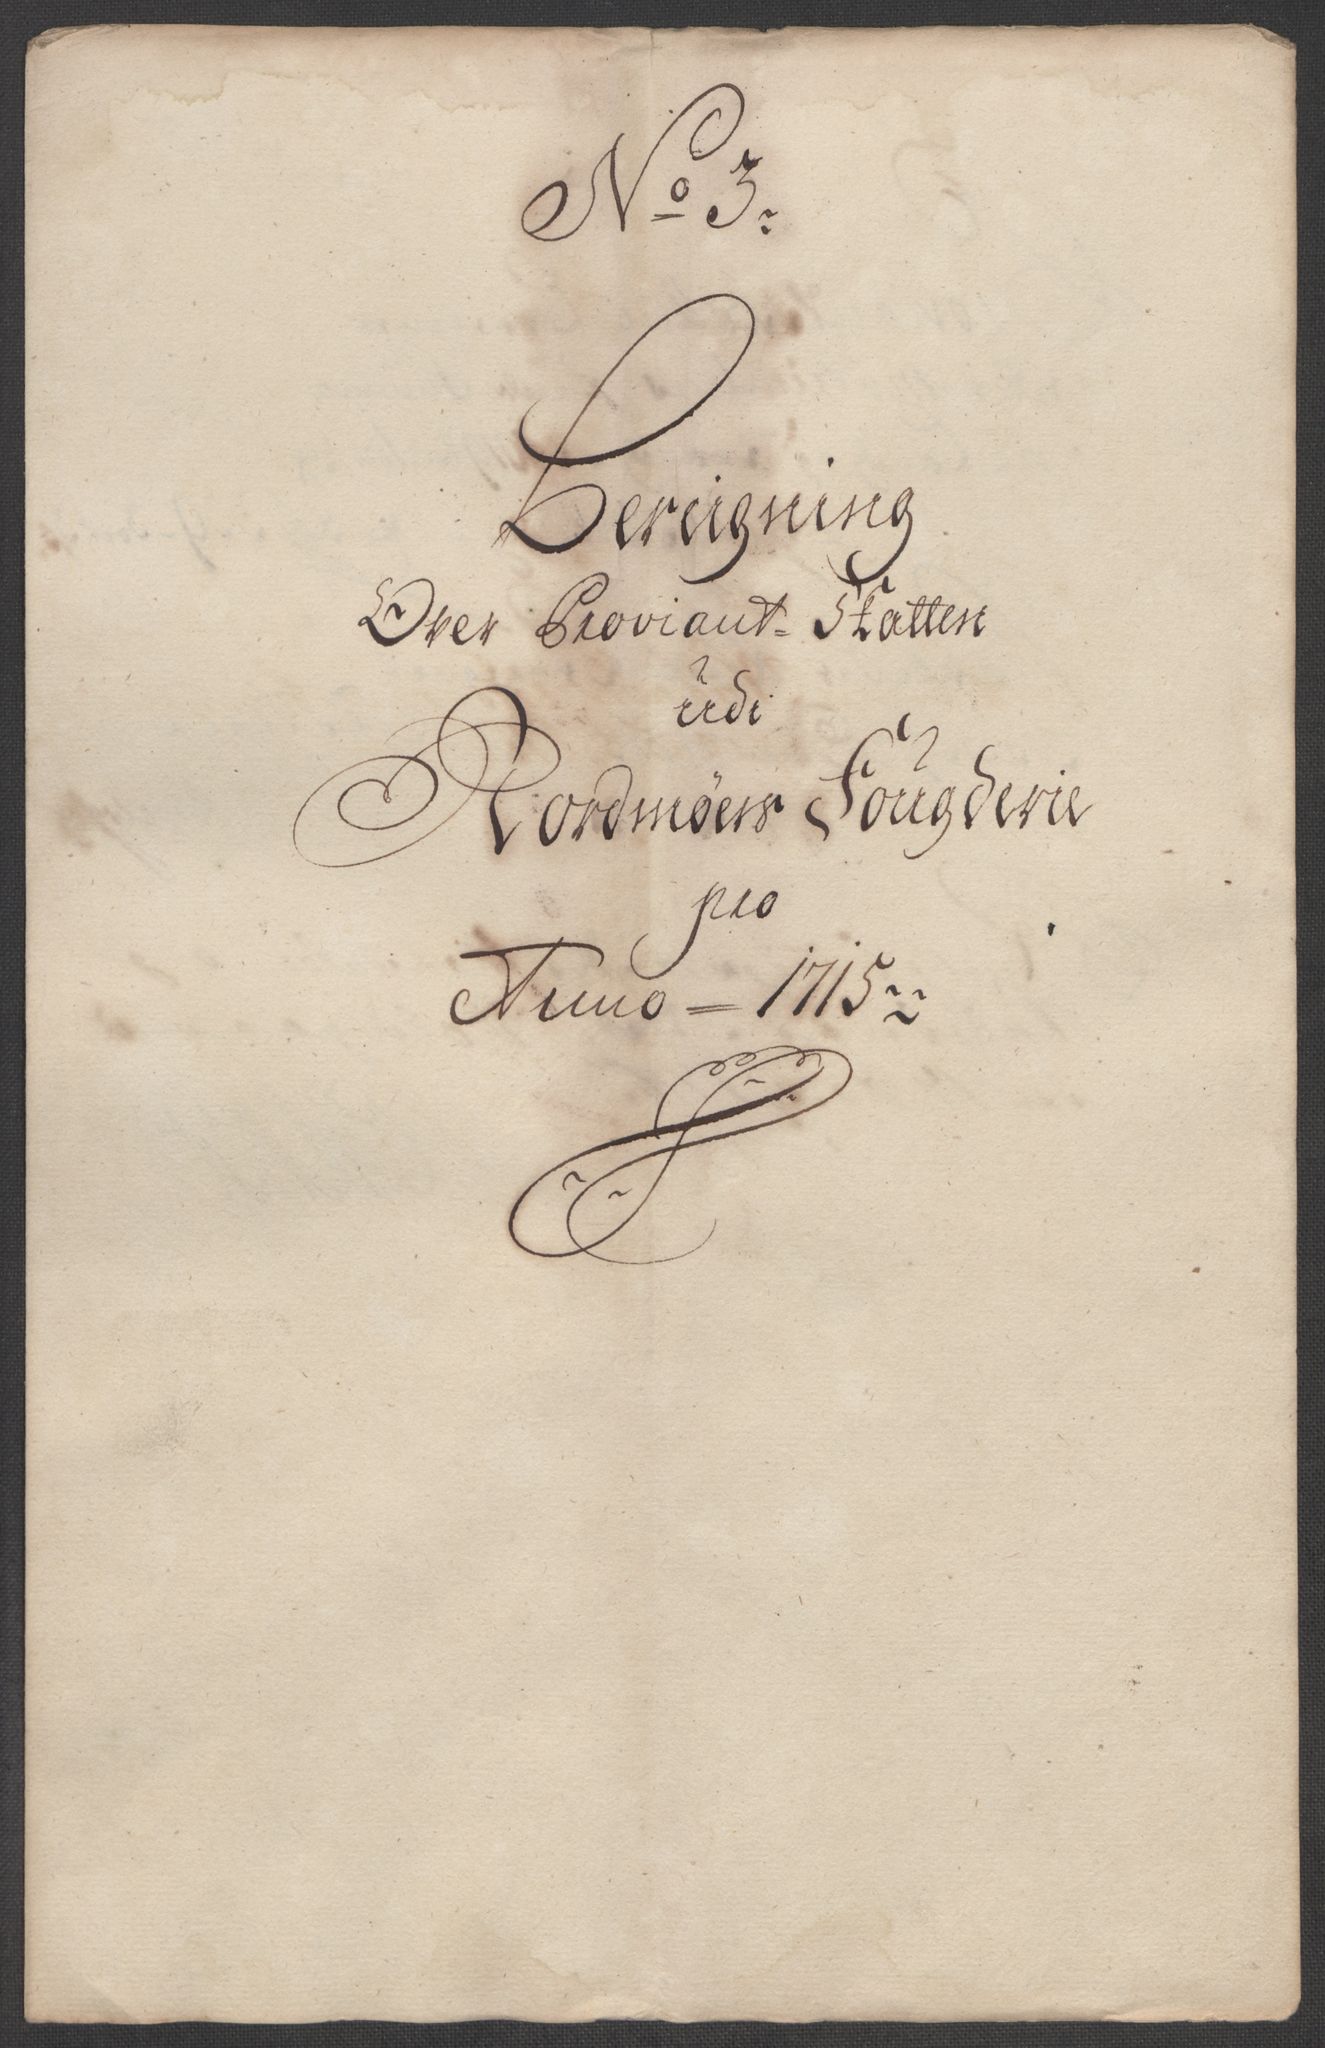 No 3.
Bereigning
Over Proviant-Skatten
udi
Nordmøers Fougderie
pro
Anno = 1715